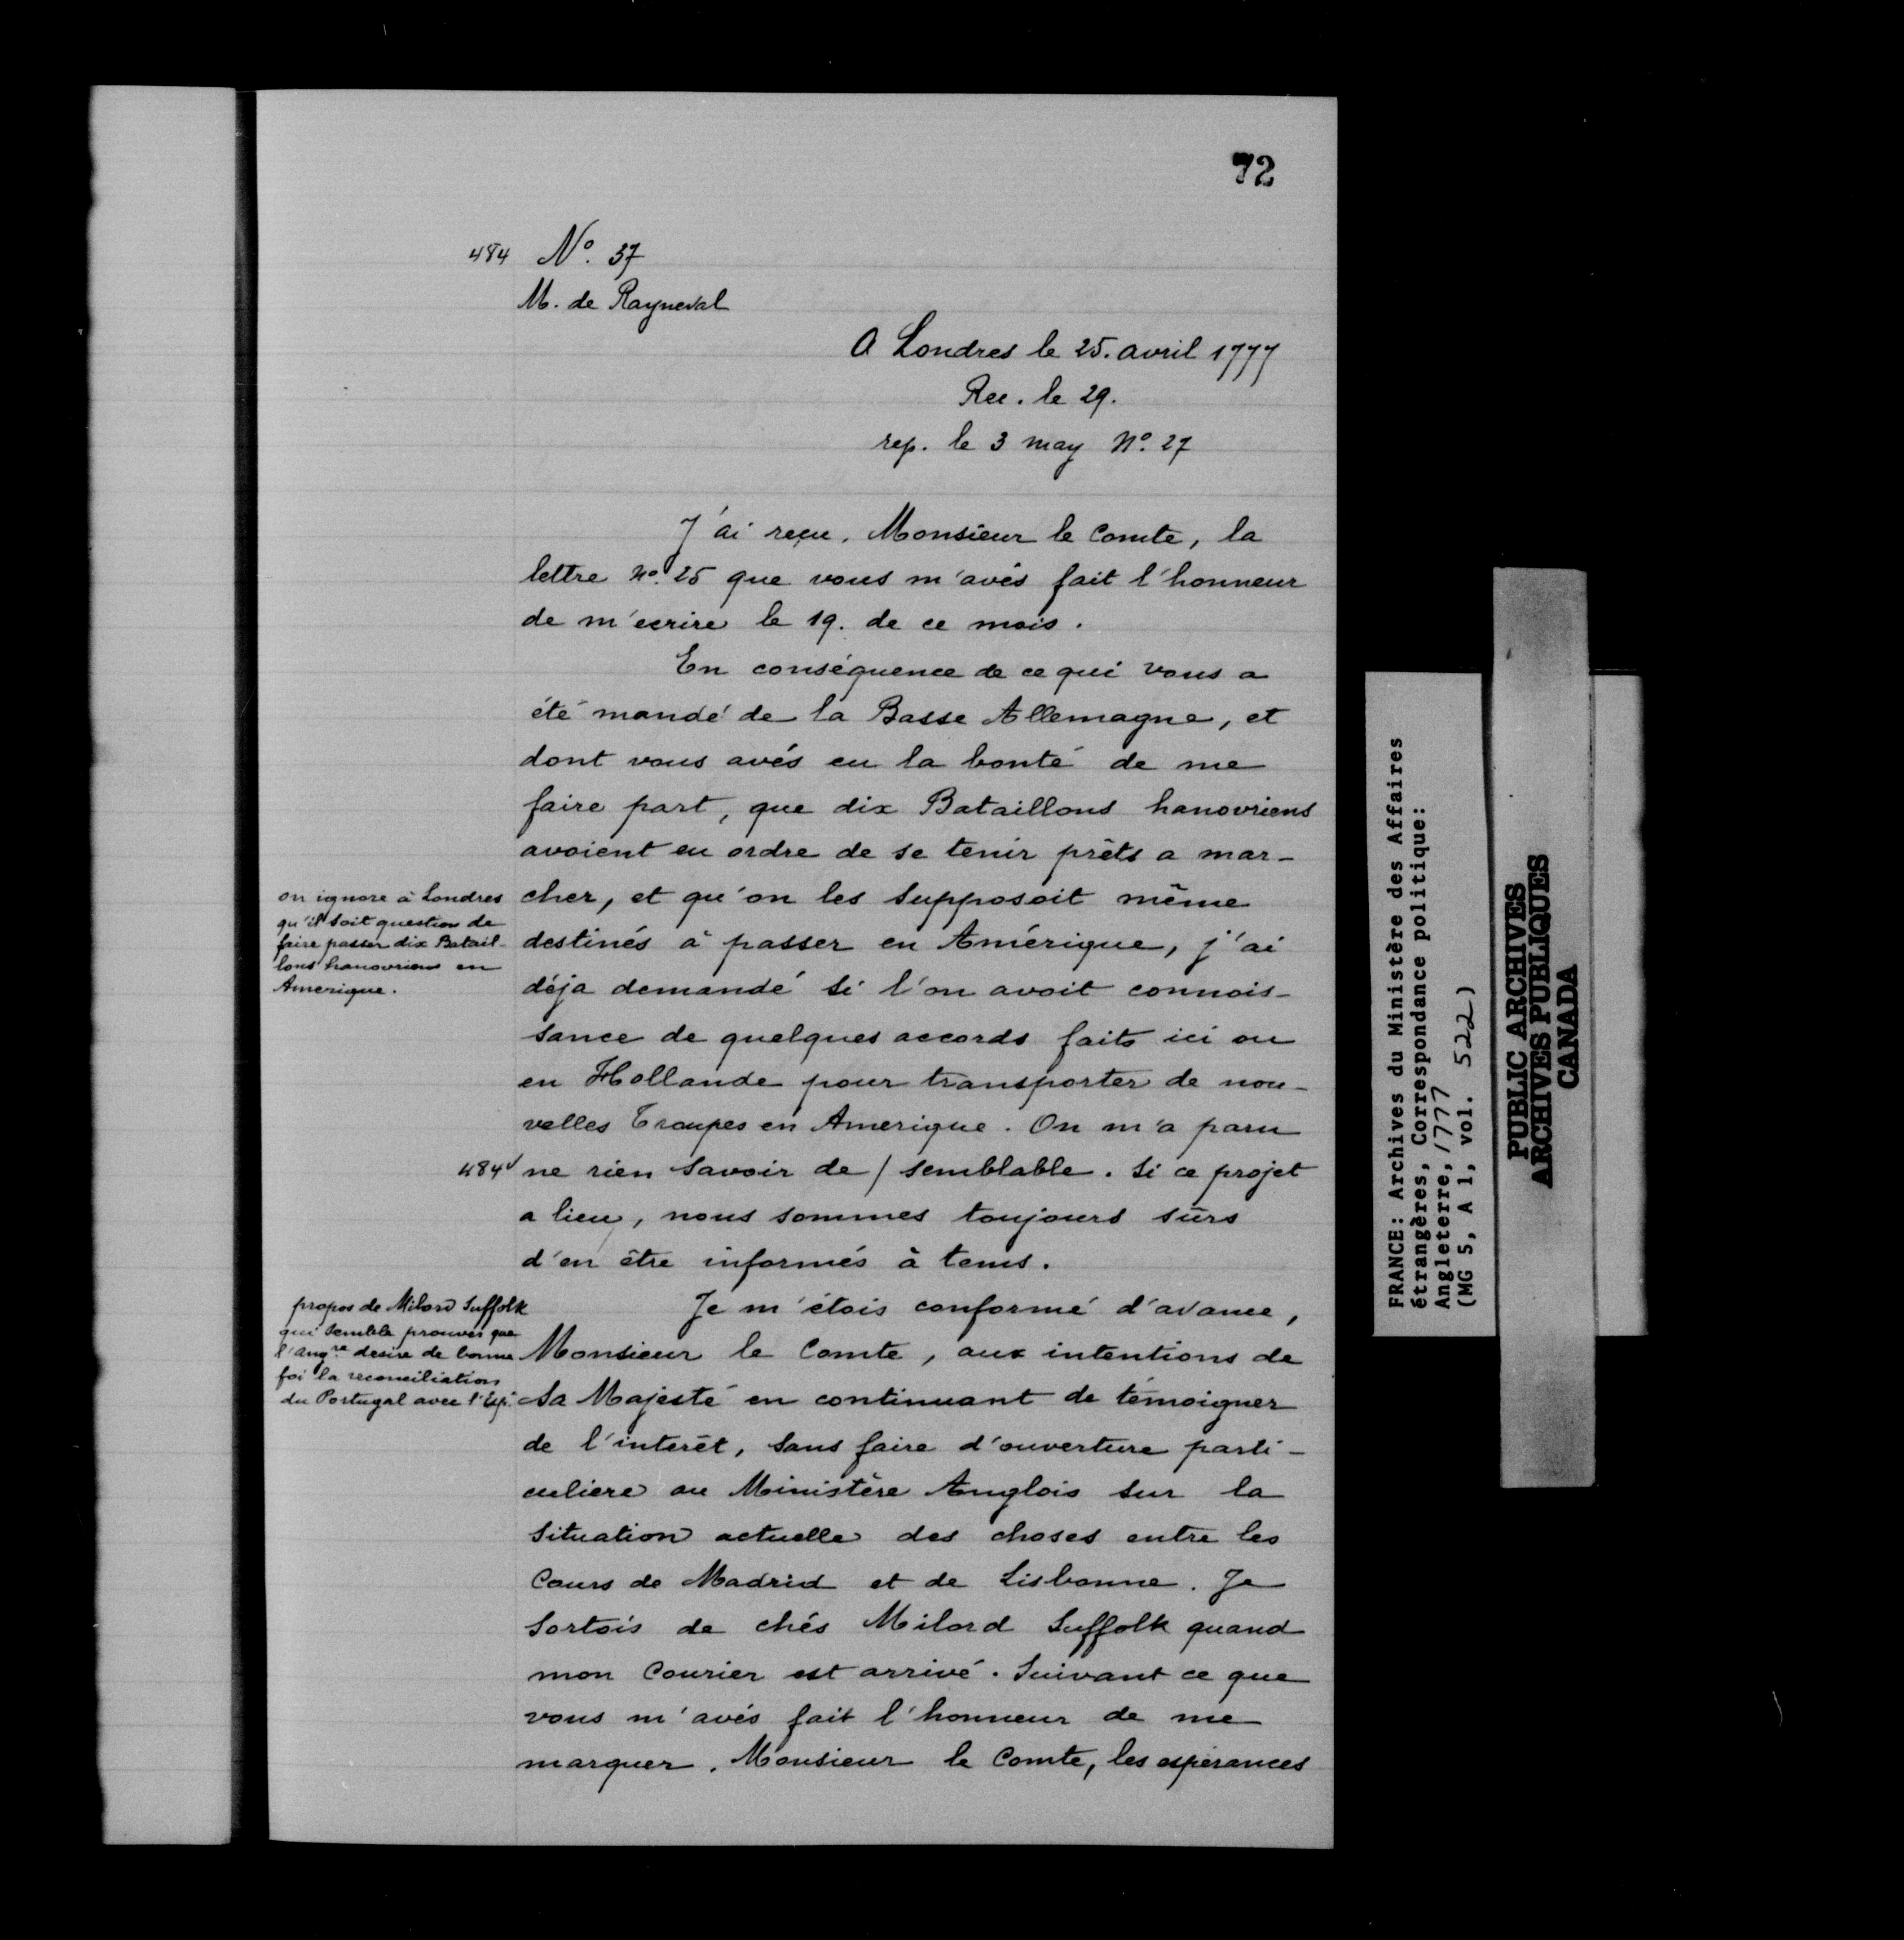 72
484 Nº. 37
M. de Rayneval
A Londres le 25. avril 1777
Rec. le 29.
rep. le 3 may Nº. 27
J'ai reçu, Monsieur le Comte, la
lettre Nº. 25 que vous m'avés fait l'honneur
de m'ecrire le 19. de ce mois.
En conséquence de ce qui vous a
été mandé de la Basse Allemagne, et
dont vous avés eu la bonté de me
faire part, que dix Bataillons hanovriens
avoient eu ordre de se tenir prêts a mar-
on ignore à Londres
qu'il soit question de
faire passer dix Batail-
lons hanovriens en
Amerique.
cher, et qu'on les supposoit même
destinés à passer en Amérique, j'ai
déja demandé si l'on avoit connois-
sance de quelques accords faits ici ou
en Hollande pour transporter de nou-
velles Troupes en Amerique. On m'a paru
484v ne rien savoir de / semblable. Si ce projet
a lieu, nous sommes toujours sûrs
d'en être informés à tems.
propos de Milord Suffolk
qui semble prouver que
l'Angre desire de bonne
foi la reconciliation
du Portugal avec l'Esp.
Je m'étois conformé d'avance,
Monsieur le Comte, aux intentions de
Sa Majesté en continuant de témoigner
de l'interêt, sans faire d'ouverture parti-
culiere au Ministère Anglois sur la
situation actuelle des choses entre les
Cours de Madrid et de Lisbonne. Je
sortois de chés Milord Suffolk quand
mon Courier est arrivé. Suivant ce que
vous m'avés fait l'honneur de me
marquer, Monsieur le Comte, les espérances
FRANCE: Archives du Ministère des Affaires
étrangères, Correspondance politique:
Angleterre, 1777
(MG 5, A 1, vol. 522)
PUBLIC ARCHIVES
ARCHIVES PUBLIQUES
CANADA